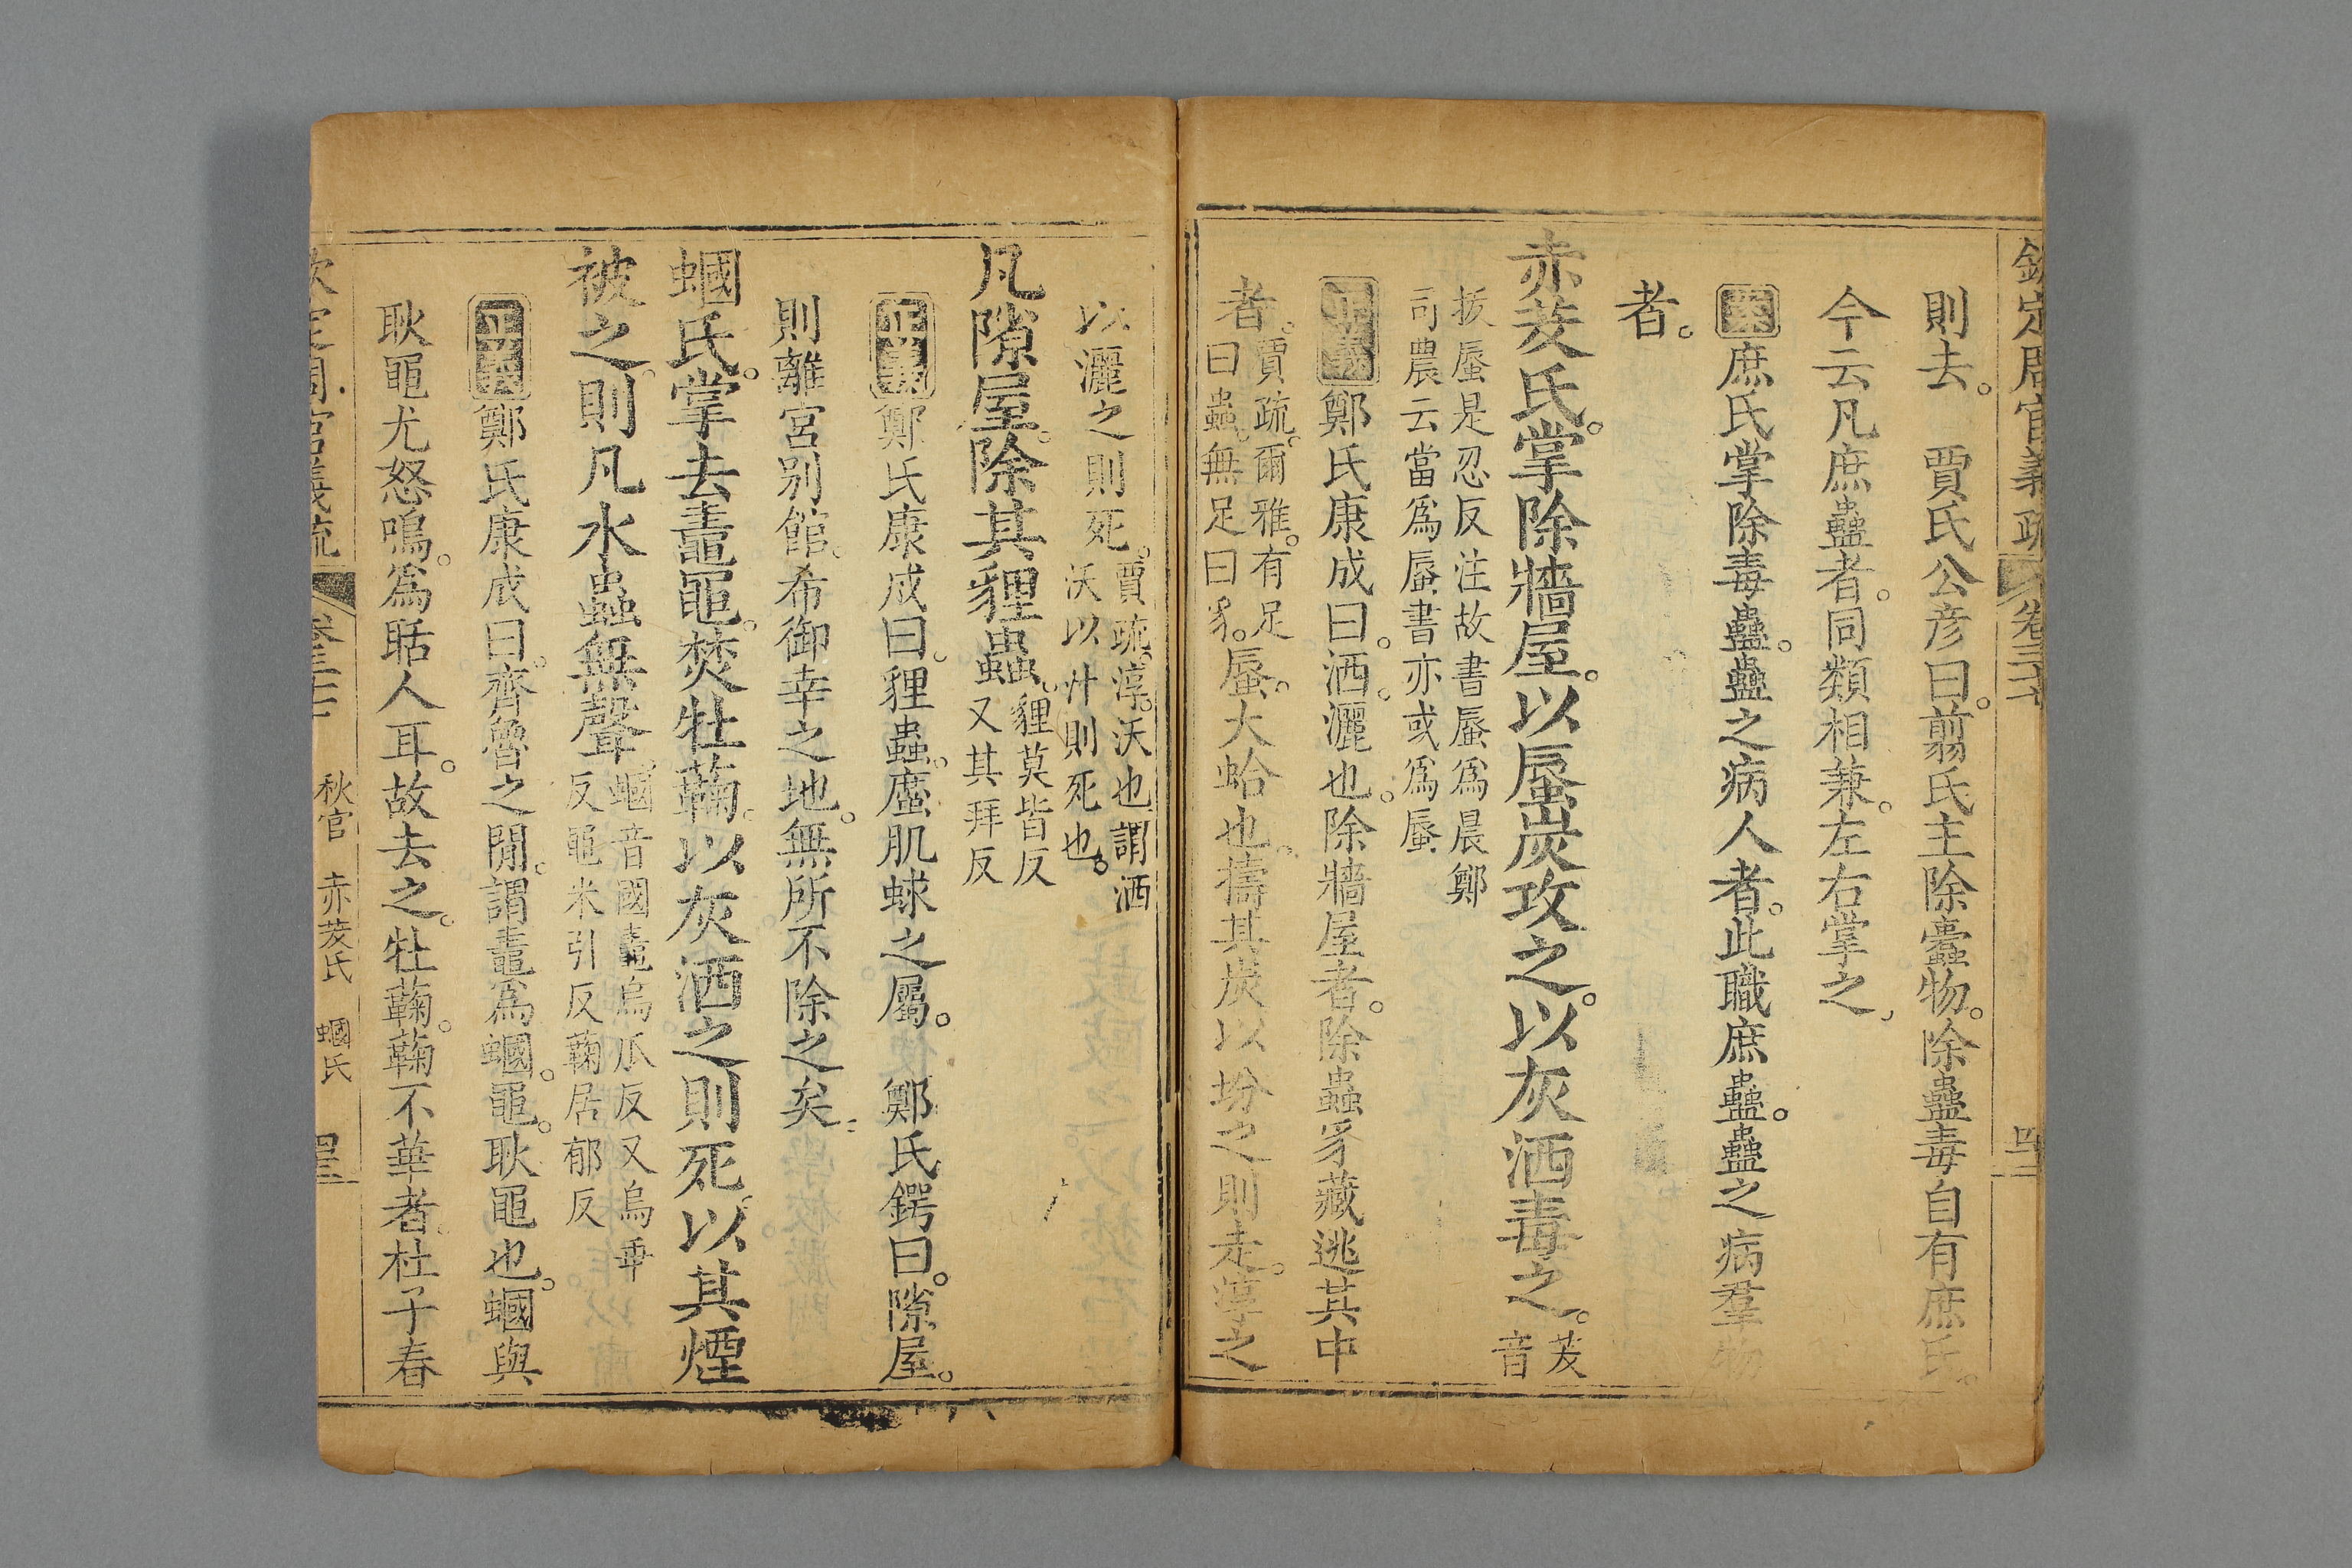 欽定周官義疏 卷三十七
則去。 賈氏公彥曰。翦氏主除蠹物。除蠱毒自有庶氏。
今云凡庶蠱者。同類相兼。左右掌之、
案庶氏掌除毒蠱。蠱之病人者。此職庶蠱。蠱之病羣物
者。
赤犮氏。掌除牆屋。以蜃炭攻之。以灰洒毒之。犮音
拔蜃是忍反注故書蜃爲晨鄭
司農云當爲蜃書亦或爲蜃
正義鄭氏康成曰。洒。灑也。除牆屋者。除蟲豸藏逃其中
者。賈疏。爾雅。有足曰蟲。無足曰豸。蜃。大蛤也。擣其炭以坋之則走。淳之
以灑之則死。賈疏。淳。沃也謂洒沃以汁則死也。
凡隙屋。除其貍蟲。貍莫皆反又其拜反
正義鄭氏康成曰。貍蟲。䗪肌蛷之屬。 鄭氏鍔曰。隙屋。
則離宮別館。希御幸之地。無所不除之矣。
蟈氏。掌去鼃黽。焚牡蘜。以灰洒之則死。以其煙
被之。則凡水蟲無聲。蟈音國鼃烏瓜反又烏乖
反黽米引反蘜居郁反
正義鄭氏康成曰。齊魯之閒。謂鼃爲蟈。黽。耿黽也。蟈與
耿黽尤怒鳴。爲聒人耳。故去之。牡蘜。蘜不華者。杜子春
欽定周官義疏 卷三十七 秋官 赤犮氏 蟈氏